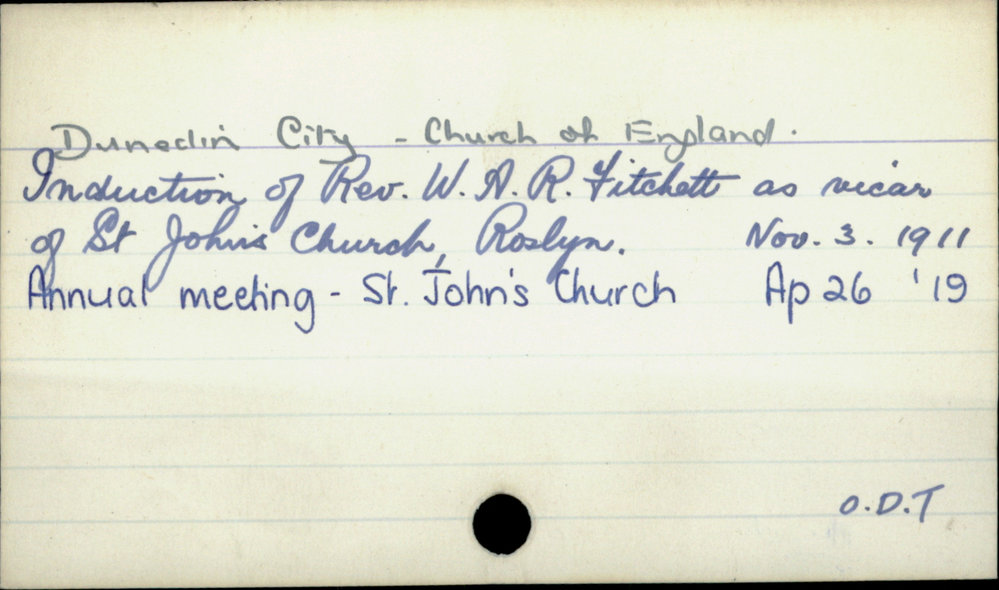 Dunedin City - Church of England.
Induction of Rev. W. A. R. Fitchett as vicar
of St John's Church, Roslyn. Nov. 3. 1911
Annual meeting - St. John's Church Ap 26 '19
O.D.T